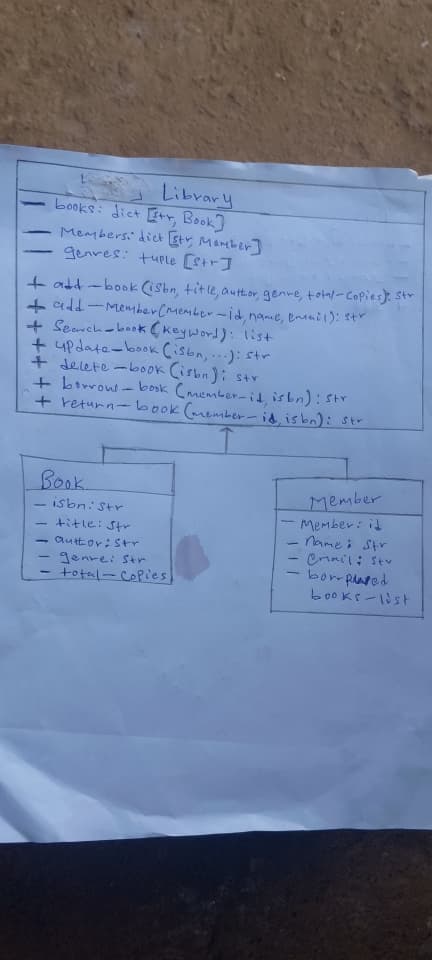 Library
— books: dict [str, Book]
— Members: dict [str, Member]
— genres: tuple [str]
+ add-book (isbn, title, author, genre, total-copies): str
+ add-Member (member-id, name, email): str
+ Search-book (keyword): list
+ update-book (isbn, ...): str
+ delete-book (isbn): str
+ borrow-book (member-id, isbn): str
+ return-book (member-id, isbn): str
Book
- isbn: str
- title: str
- author: str
- genre: str
- total-copies
Member
- Member: id
- name: str
- email: str
- borrowed
books-list